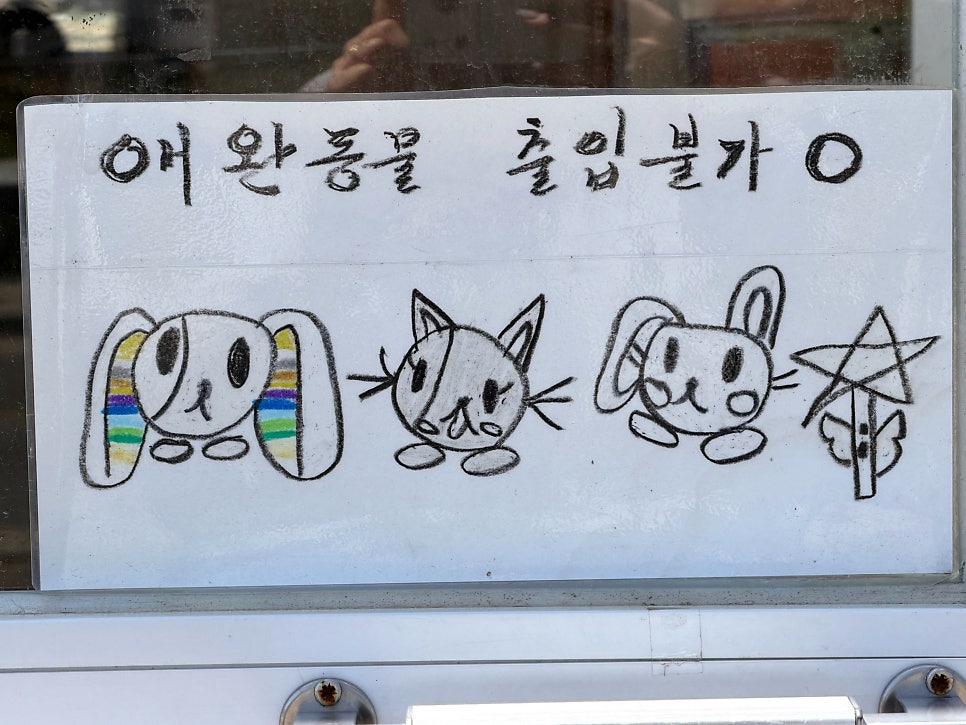 애완동물 출입불가 O